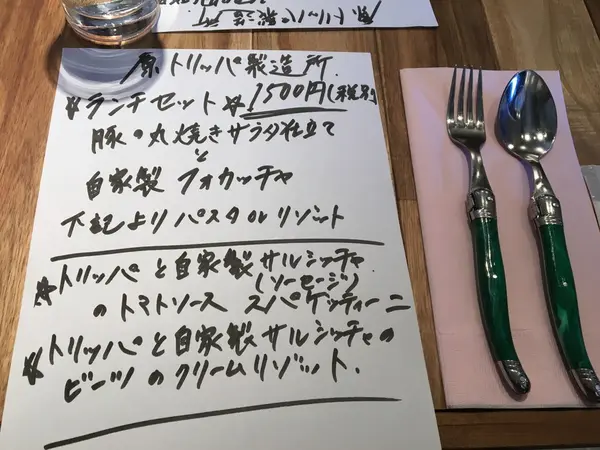 原トリッパ製造所
原トリッパ製造所.
*ランチセット* 1500円(税別
豚の丸焼きサラダ仕立て
と
自家製 フォカッチャ
下記よりパスタorリゾット
*トリッパと自家製サルシッチャ
(ソーセージ)
のトマトソース スパゲッティーニ
*トリッパと自家製サルシッチャの
ビーンズのクリームリゾット.